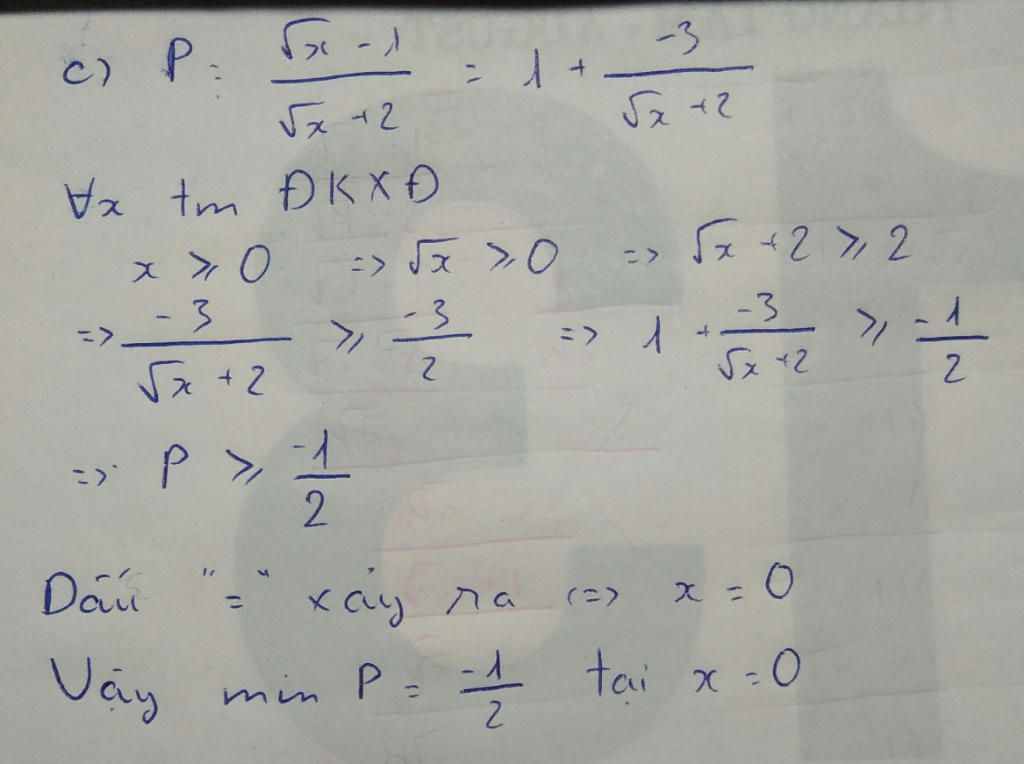 c) P = (√x - 1)/(√x + 2) = 1 + (-3)/(√x + 2)
∀x tm ĐKXĐ
x ⩾ 0 => √x ⩾ 0 => √x + 2 ⩾ 2
=> (-3)/(√x + 2) ⩾ (-3)/2 => 1 + (-3)/(√x + 2) ⩾ (-1)/2
=> P ⩾ (-1)/2
Dấu "=" xảy ra <=> x = 0
Vậy min P = (-1)/2 tại x = 0